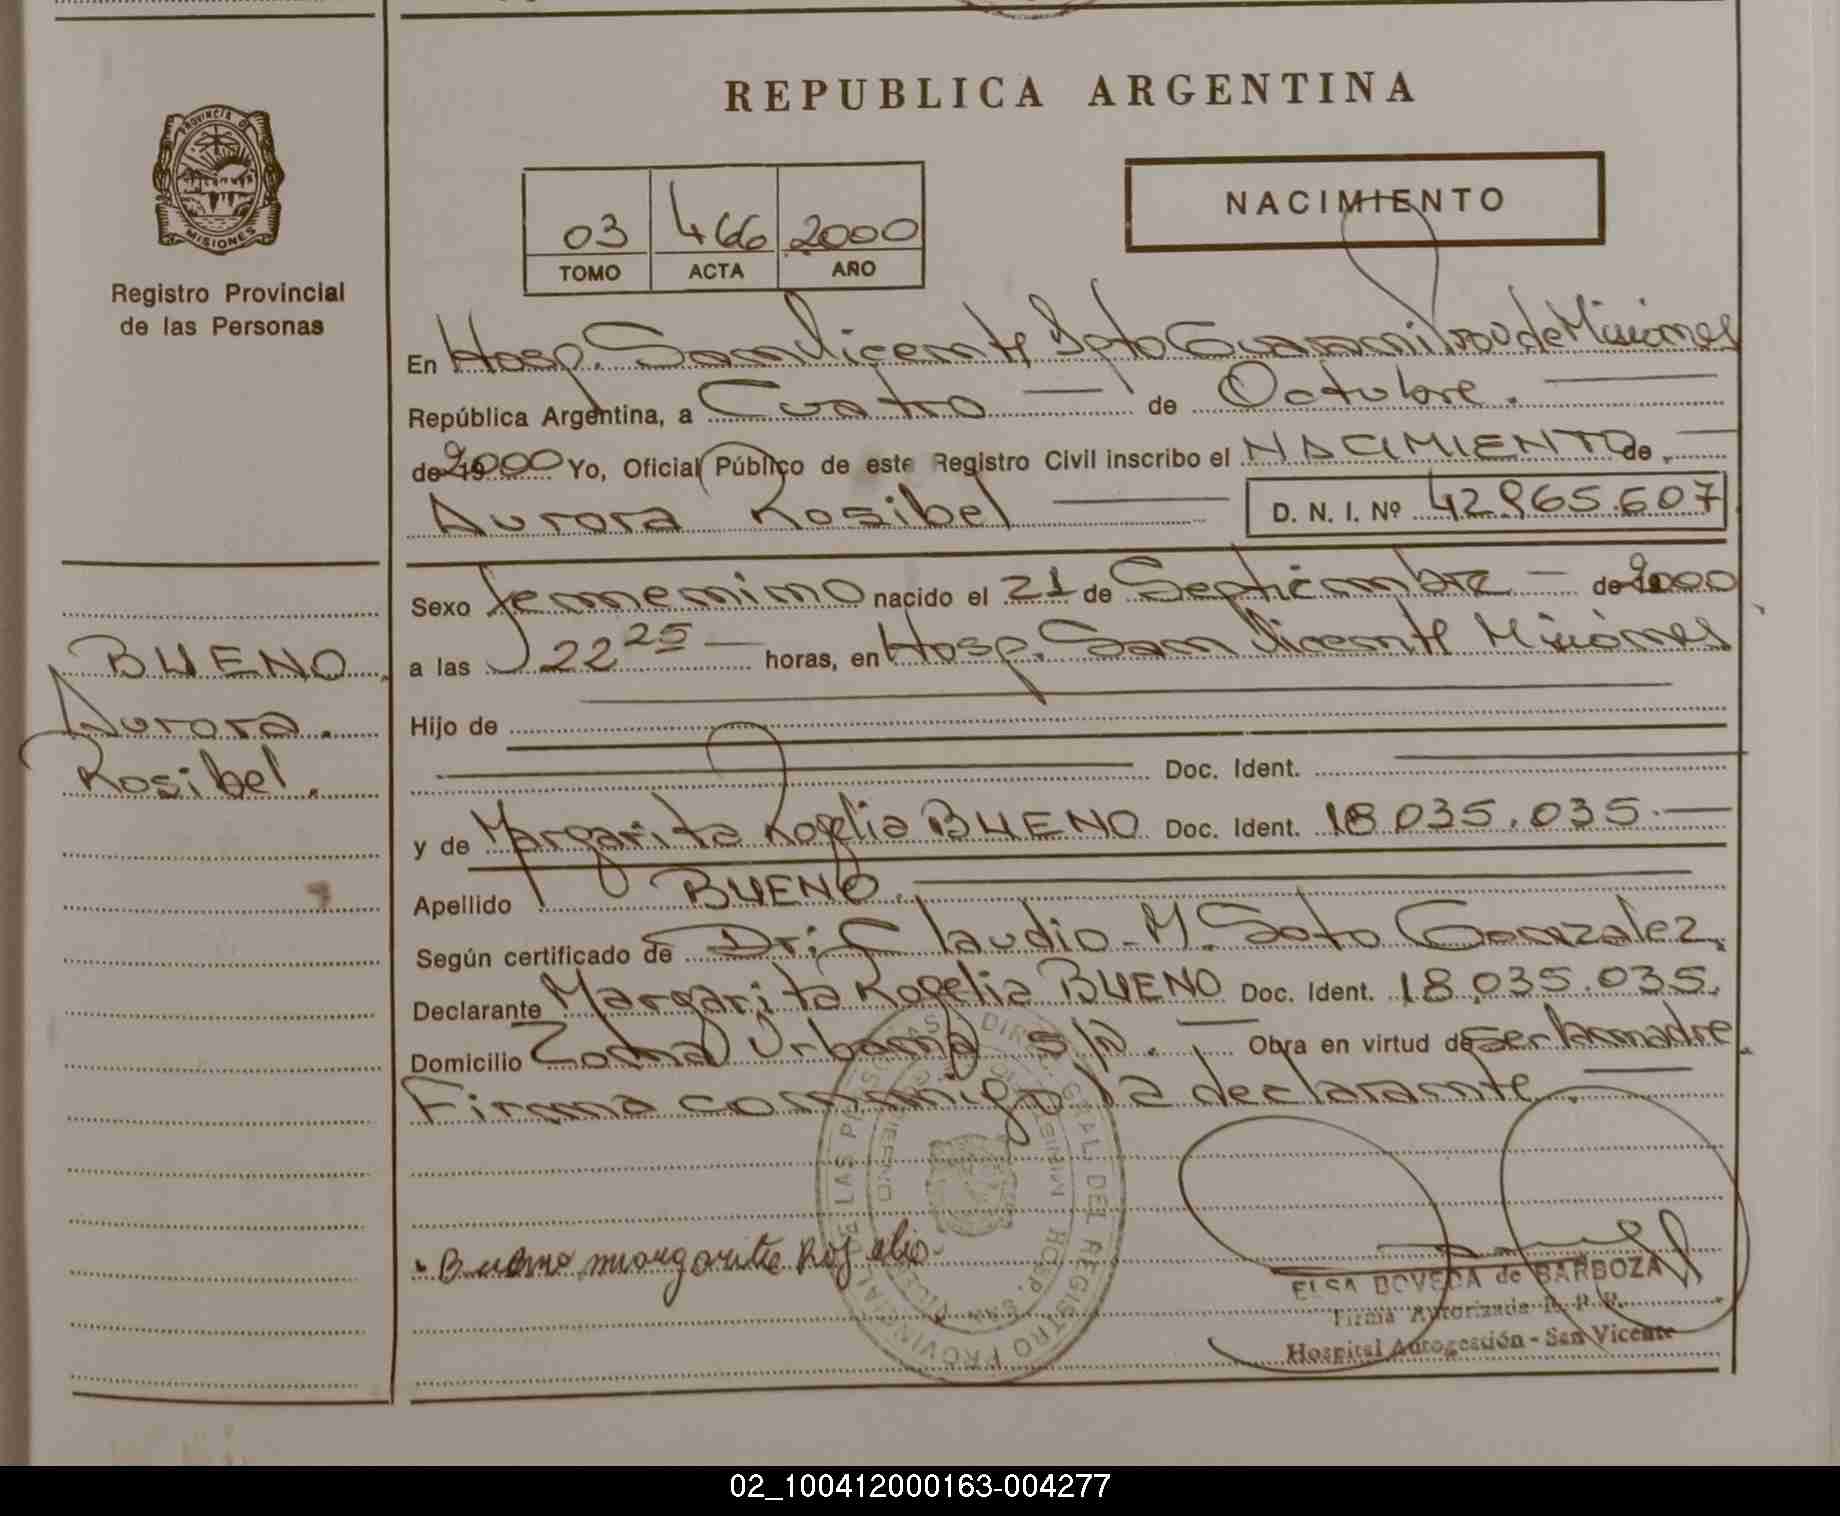 REPUBLICA ARGENTINA
PROVINCIA DE
MISIONES
Registro Provincial
de las Personas
03 466 2000
TOMO ACTA AÑO
NACIMIENTO
En Hosp. San Vicente Dpto Guarani Prov de Misiones
República Argentina, a Cuatro — de Octubre. —
de 2000 Yo, Oficial Público de este Registro Civil inscribo el NACIMIENTO de. —
Aurora Rosibel — D. N. I. Nº 42.965.607
Sexo femenino nacido el 21 de Septiembre — de 2000
a las 22 25 — horas, en Hosp. San Vicente Misiones
Hijo de
Doc. Ident.
y de Margarita Rogelia BUENO Doc. Ident. 18.035.035. —
Apellido BUENO.
Según certificado de Dr: Claudio M. Soto Gonzalez.
Declarante Margarita Rogelia BUENO Doc. Ident. 18.035.035.
Domicilio Zona Urbana s/n. — Obra en virtud de ser la madre.
Firma conmigo la declarante. —
BUENO.
Aurora.
Rosibel.
Bueno margarita Rogelia
DIREC. GRAL. DEL REGISTRO PROVINCIAL DE LAS PERSONAS
ELSA BOVEDA de BARBOZA
Firma Autorizada R. P. P.
Hospital Autogestión - San Vicente
02_100412000163-004277